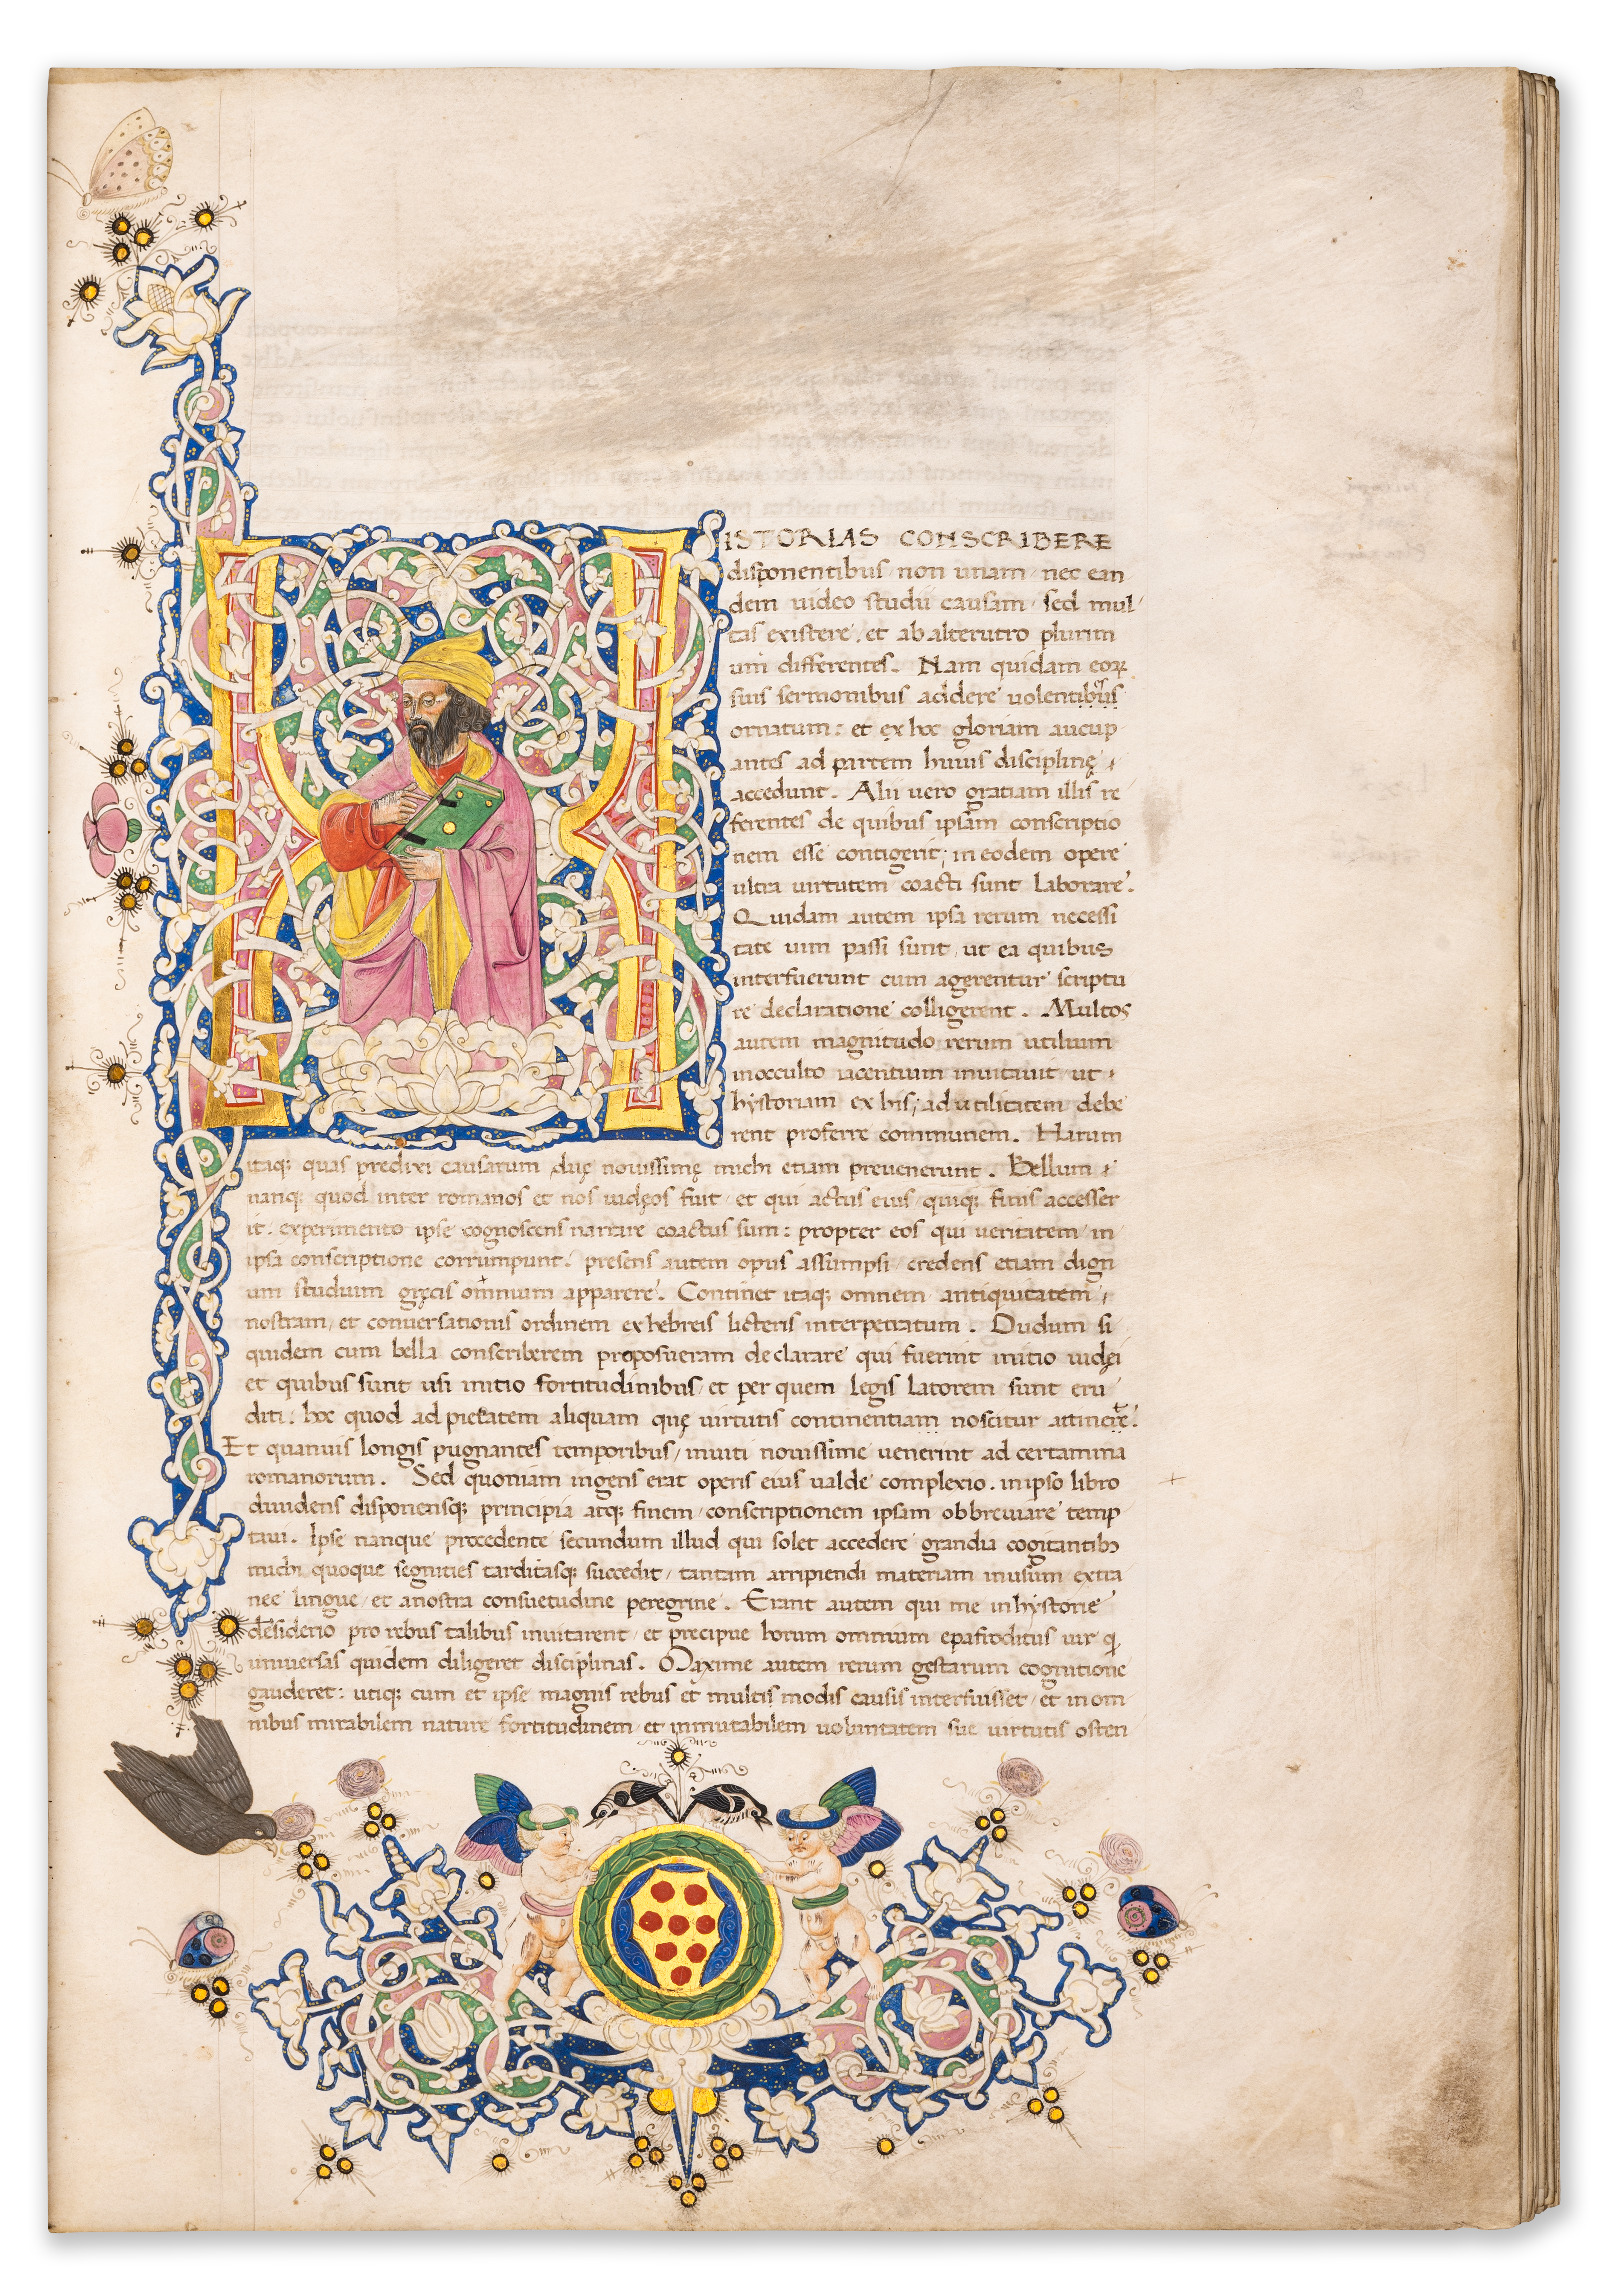 HISTORIAS CONSCRIBERE
disponentibus non unam nec ean
dem uideo studii causam sed mul
tas existere. et ab alterutro plurim
um differentes. Nam quidam eoꝝ
suis sermonibus addere uolentibus
ornatum: et ex hoc gloriam aucup
antes ad partem huius disciplinę
accedunt. Alii uero gratiam illis re
ferentes de quibus ipsam conscriptio
nem esse contigerit; in eodem opere
ultra uirtutem coacti sunt laborare.
Quidam autem ipsa rerum necessi
tate uim passi sunt ut ea quibus
interfuerunt cum agerentur scriptu
re declaratione colligerent. Multos
autem magnitudo rerum utilium
inocculto iacentium inuitauit ut
hystoriam ex his; ad utilitatem debe
rent proferre communem. Harum
itaq; quas predixi causarum duę nouissimę michi etiam preuenerunt. Bellum
nanq; quod inter romanos et nos iudęos fuit et qui actus eius quiq; finis accesser
it. experimento ipse cognoscens narrare coactus sum: propter eos qui ueritatem in
ipsa conscriptione corrumpunt. presens autem opus assumpsi credens etiam dign
um studium gręcis omnium apparere. Continet itaq; omnem antiquitatem
nostram, et conuersationis ordinem ex hebreis licteris interpetratum. Dudum si
quidem cum bella conscriberem proposueram declarare qui fuerint initio iudęi
et quibus sunt usi initio fortitudinibus et per quem legis latorem sunt eru
diti. hoc quod ad pietatem aliquam quę uirtutis continentiam noscitur
Et quamuis longis pugnantes temporibus inuiti nouissime uenerint ad certamina
romanorum. Sed quoniam ingens erat operis eius ualde complexio. in ipso libro
diuidens disponensq; principia atq; finem conscriptionem ipsam obbreuiare temp
taui. Ipse nanque procedente secundum illud qui solet accedere grandia cogitantibꝫ
michi quoque segnities tarditasq; succedit tantam arripiendi materiam inusum extra
nec lingue et anostra consuetudine peregrine. Erant autem qui me in hystorie
desiderio pro rebus talibus inuitarent et precipue horum omnium epafroditus uir q
uniuersas quidem diligeret disciplinas. Maxime autem rerum gestarum cognitione
gauderet: utiq; cum et ipse magnis rebus et multis modis causis interfuisset et in om
nibus mirabilem nature fortitudinem et inmutabilem uoluntatem sue uirtutis osten